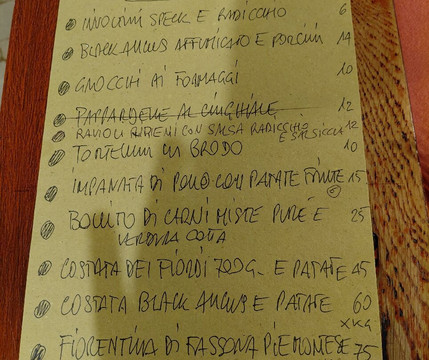 INVOLTINI SPECK E RADICCHIO 6
BLACK ANGUS AFFUMICATO E PORCINI 14
GNOCCHI AI FORMAGGI 10
PAPPARDELLE AL CINGHIALE 12
RAVIOLI RIPIENI CON SALSA RADICCHIO E SALSICCIA 12
TORTELLINI IN BRODO 10
IMPANATA DI POLLO CON PATATE FRITTE 15
BOLLITO DI CARNI MISTE PURÈ E 25
VERDURA COTTA
COSTATA DEI FIORDI 700G. E PATATE 45
COSTATA BLACK ANGUS E PATATE 60
X KG
FIORENTINA DI FASSONA PIEMONTESE 75